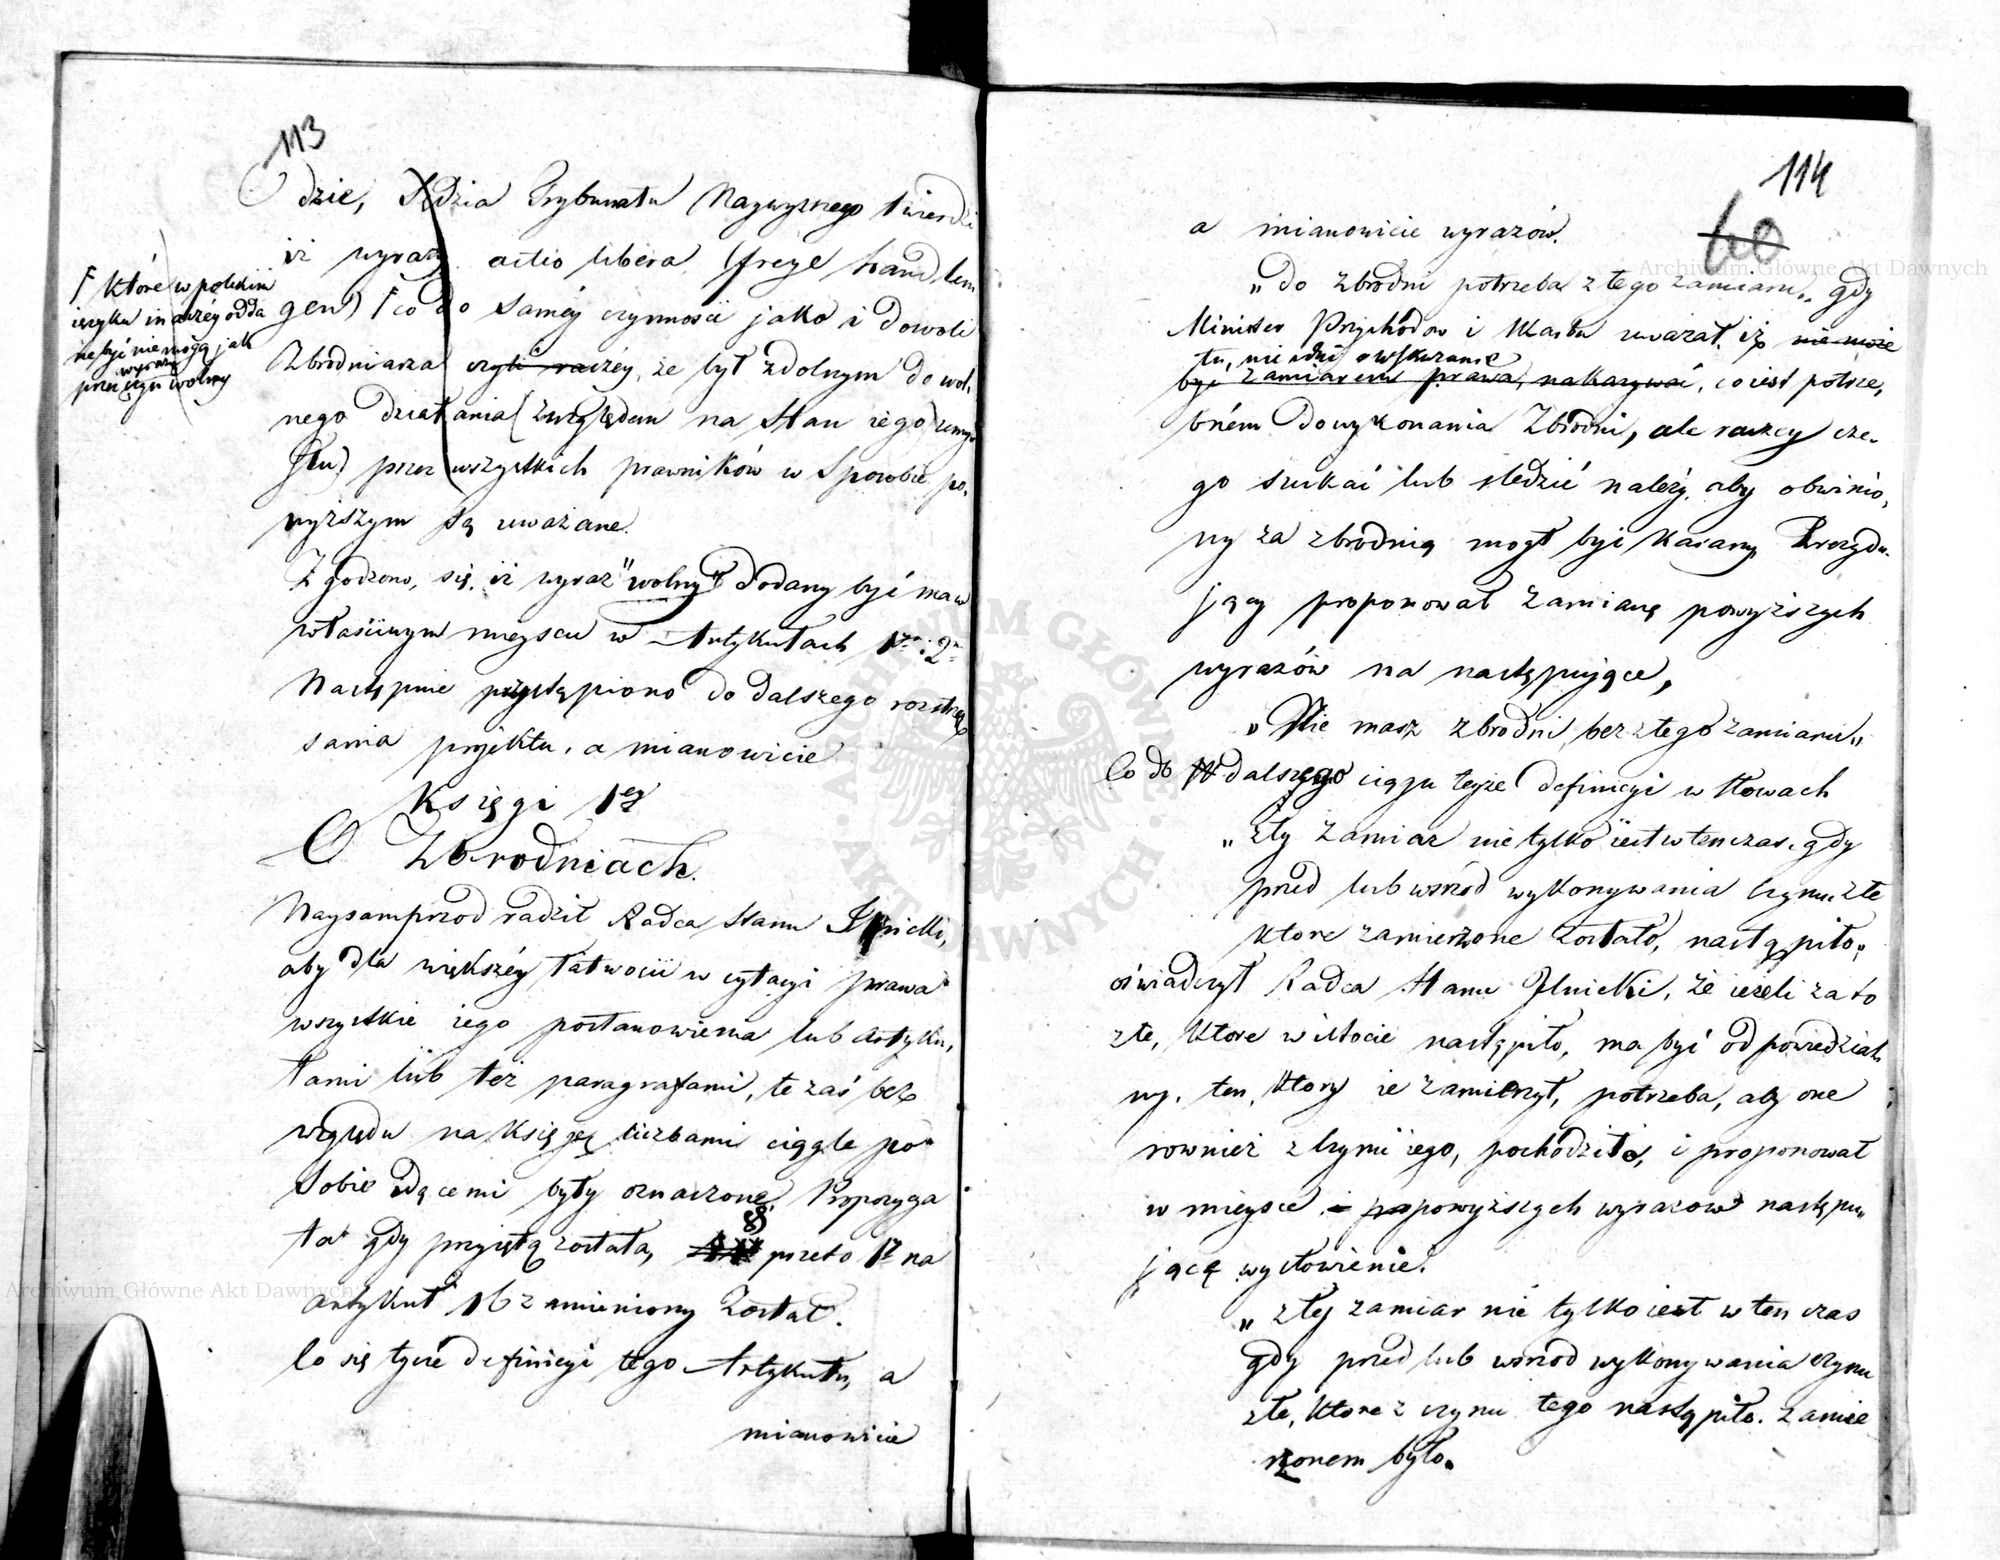 113
dzie, Sędzia Trybunału Naywyższego twierdzi
iż wyrazy actio libera (freye Hand lun
gen) F co do saméy czynności jako i dowoli
Zbrodniarza czyli raczéy, że był zdolnym do wol,
nego działania (względem na Stan iego umy
słu) przez wszystkich prawników w Sposobie po,
wyższym są uważane.
F które w polskim
ięzyku inaczéy odda
ne być nie mogą jak
przez wyraz wolny
Zgodzono, się, iż wyraz "wolny" dodany być ma w
właściwym mieyscu w Artykułach 1m i 2m
Następnie przystąpiono do dalszego roztrzą
sania projektu, a mianowicie
Księgi 1ey
O Zbrodniach.
Naysamprzod radził Radca Stanu Ilnicki,
aby dla większéy łatwości w cytacyi prawa
wszystkie iego postanowienia lub Artyku,
łami lub też paragrafami, te zaś bez
względu na Księgę liczbami ciągle po
sobie idącemi były oznaczone. Propozycya
ta gdy przyiętą została, § przeto 1 na
artykuł 16 zamieniony Został.
Co się tycze definicyi tego Artykułu, a
mianowicie
114
60
a mianowicie wyrazów.
„do zbrodni potrzeba złego zamiaru„ gdy
Minister Przychodów i Skarbu uważał, iż nie może
tu, nie idzie o wskazanie
być zamiarem prawa, nakazywać, co iest potrze,
bném do wykonania Zbrodni, ale raczey cze,
go szukać lub sledzić należy, aby obwinio,
ny za zbrodnią mogł być karany Prezydu,
jący proponował Zamianę powyższych
wyrazów na następuiące,
„Nie masz zbrodni bez złego zamiaru„
Co do dalszego ciągu teyże definicyi w słowach
„zły zamiar nie tylko iest wtenczas, gdy
przed lub wsrzod wykonywania Czynu, złe
ktore zamierzone Zostało, nastąpiło„
oświadczył Radca Stanu Ilnicki, że ieżeli za to
złe, ktore w istocie nastąpiło, ma być odpowiedzial,
ny, ten, ktory ie zamierzył, potrzeba, aby one
rownież z Czynu iego, pochodziło, i proponował
w mieysce powyższych wyrazow następu„
jącę wysłowienie.
„zły zamiar nie tylko iest w ten czas
gdy przed lub wsrzod wykonywania czynu
złe, ktore z czynu tego nastąpiło. zamie
rzonem było.
Archiwum Główne Akt Dawnych
Archiwum Główne Akt Dawnych
ARCHIWUM GŁÓWNE AKT DAWNYCH